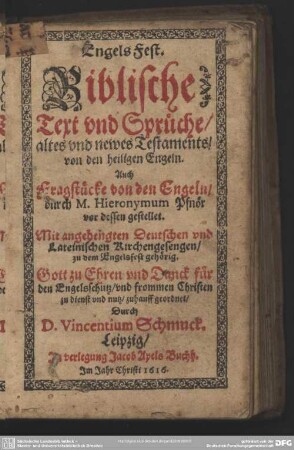 Engels Fest.
Biblische
Text vnd Sprüche/
altes vnd newes Testaments/
von den heiligen Engeln.
Auch
Fragstücke von den Engeln/
durch M. Hieronymum Pfnör
vor dessen gestellet.
Mit angehengten Deutschen vnd
Lateinischen Kirchengesengen/
zu dem Engelsfest gehörig.
Gott zu Ehren vnd Danck für
den Engelsschutz/ vnd frommen Christen
zu dienst vnd nutz/ zuhauff geordnet/
Durch
D. Vincentium Schmuck.
Leipzig/
In verlegung Jacob Apels Buchh.
Im Jahr Christi 1616.